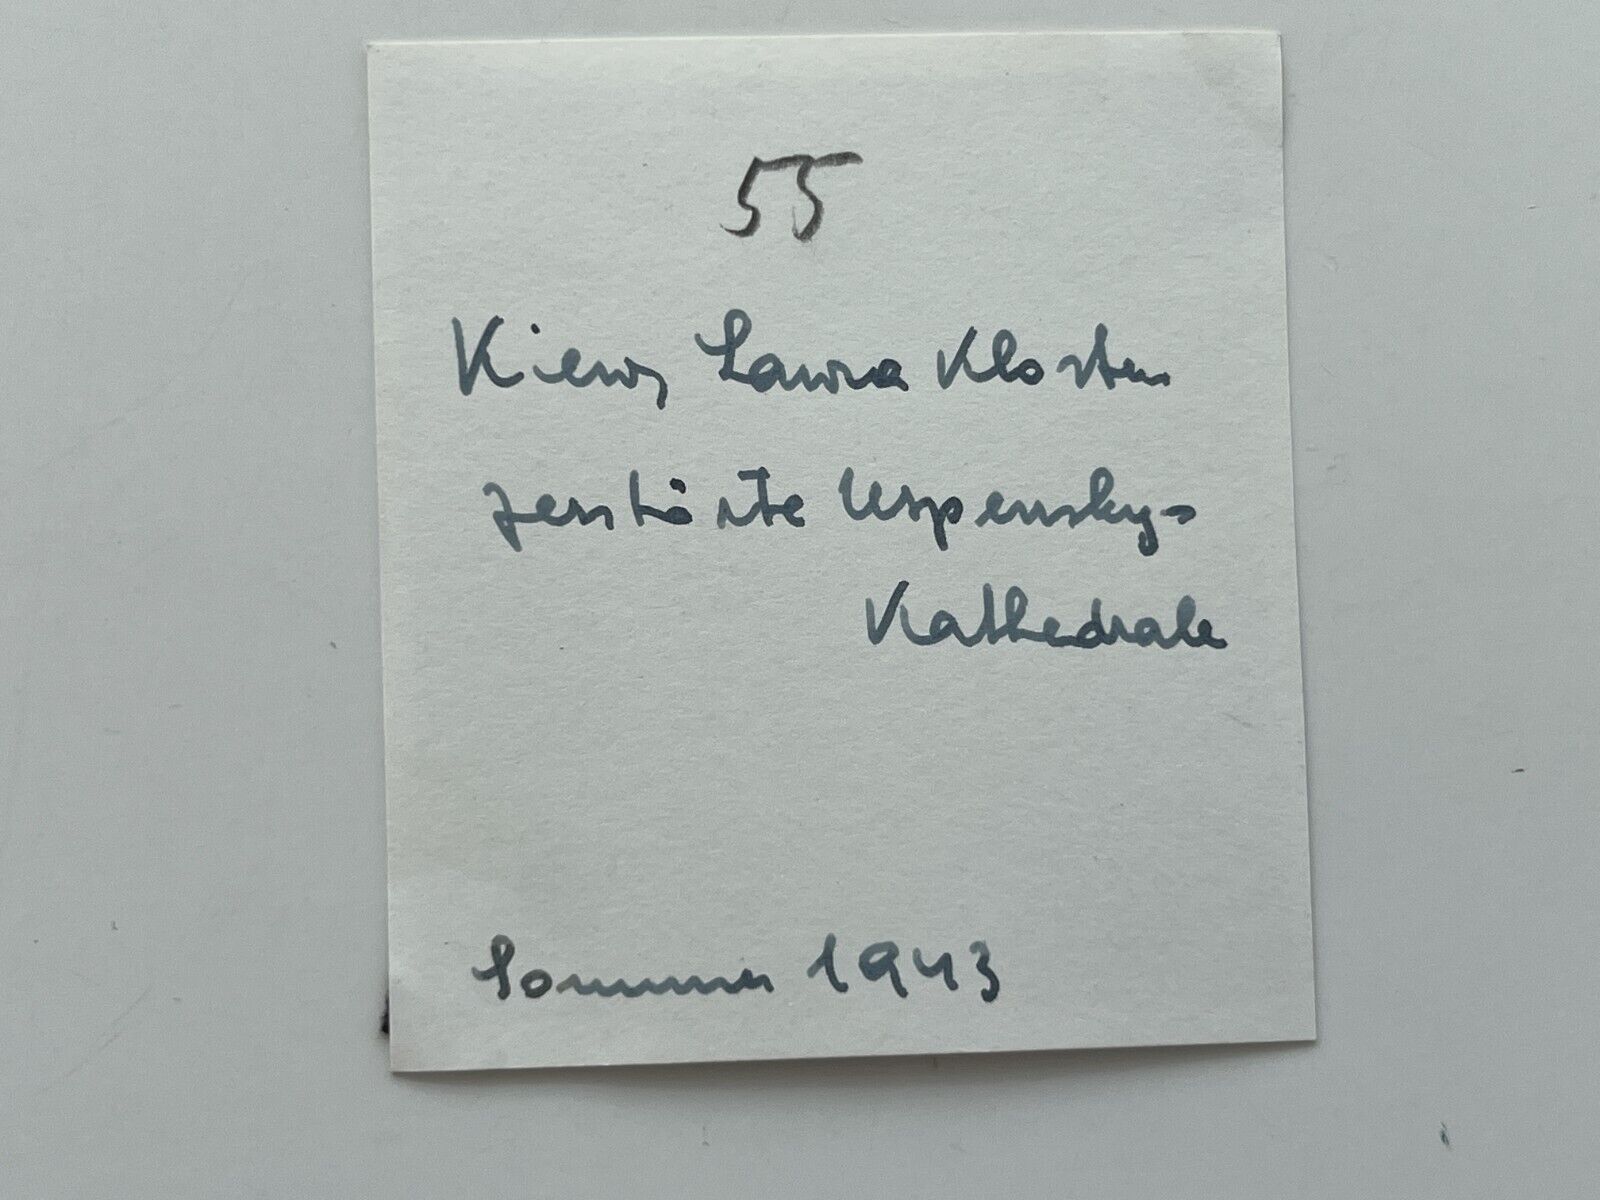 55
Kiew, Lawra Kloster
zerstörte Uspensky-
Kathedrale
Sommer 1943